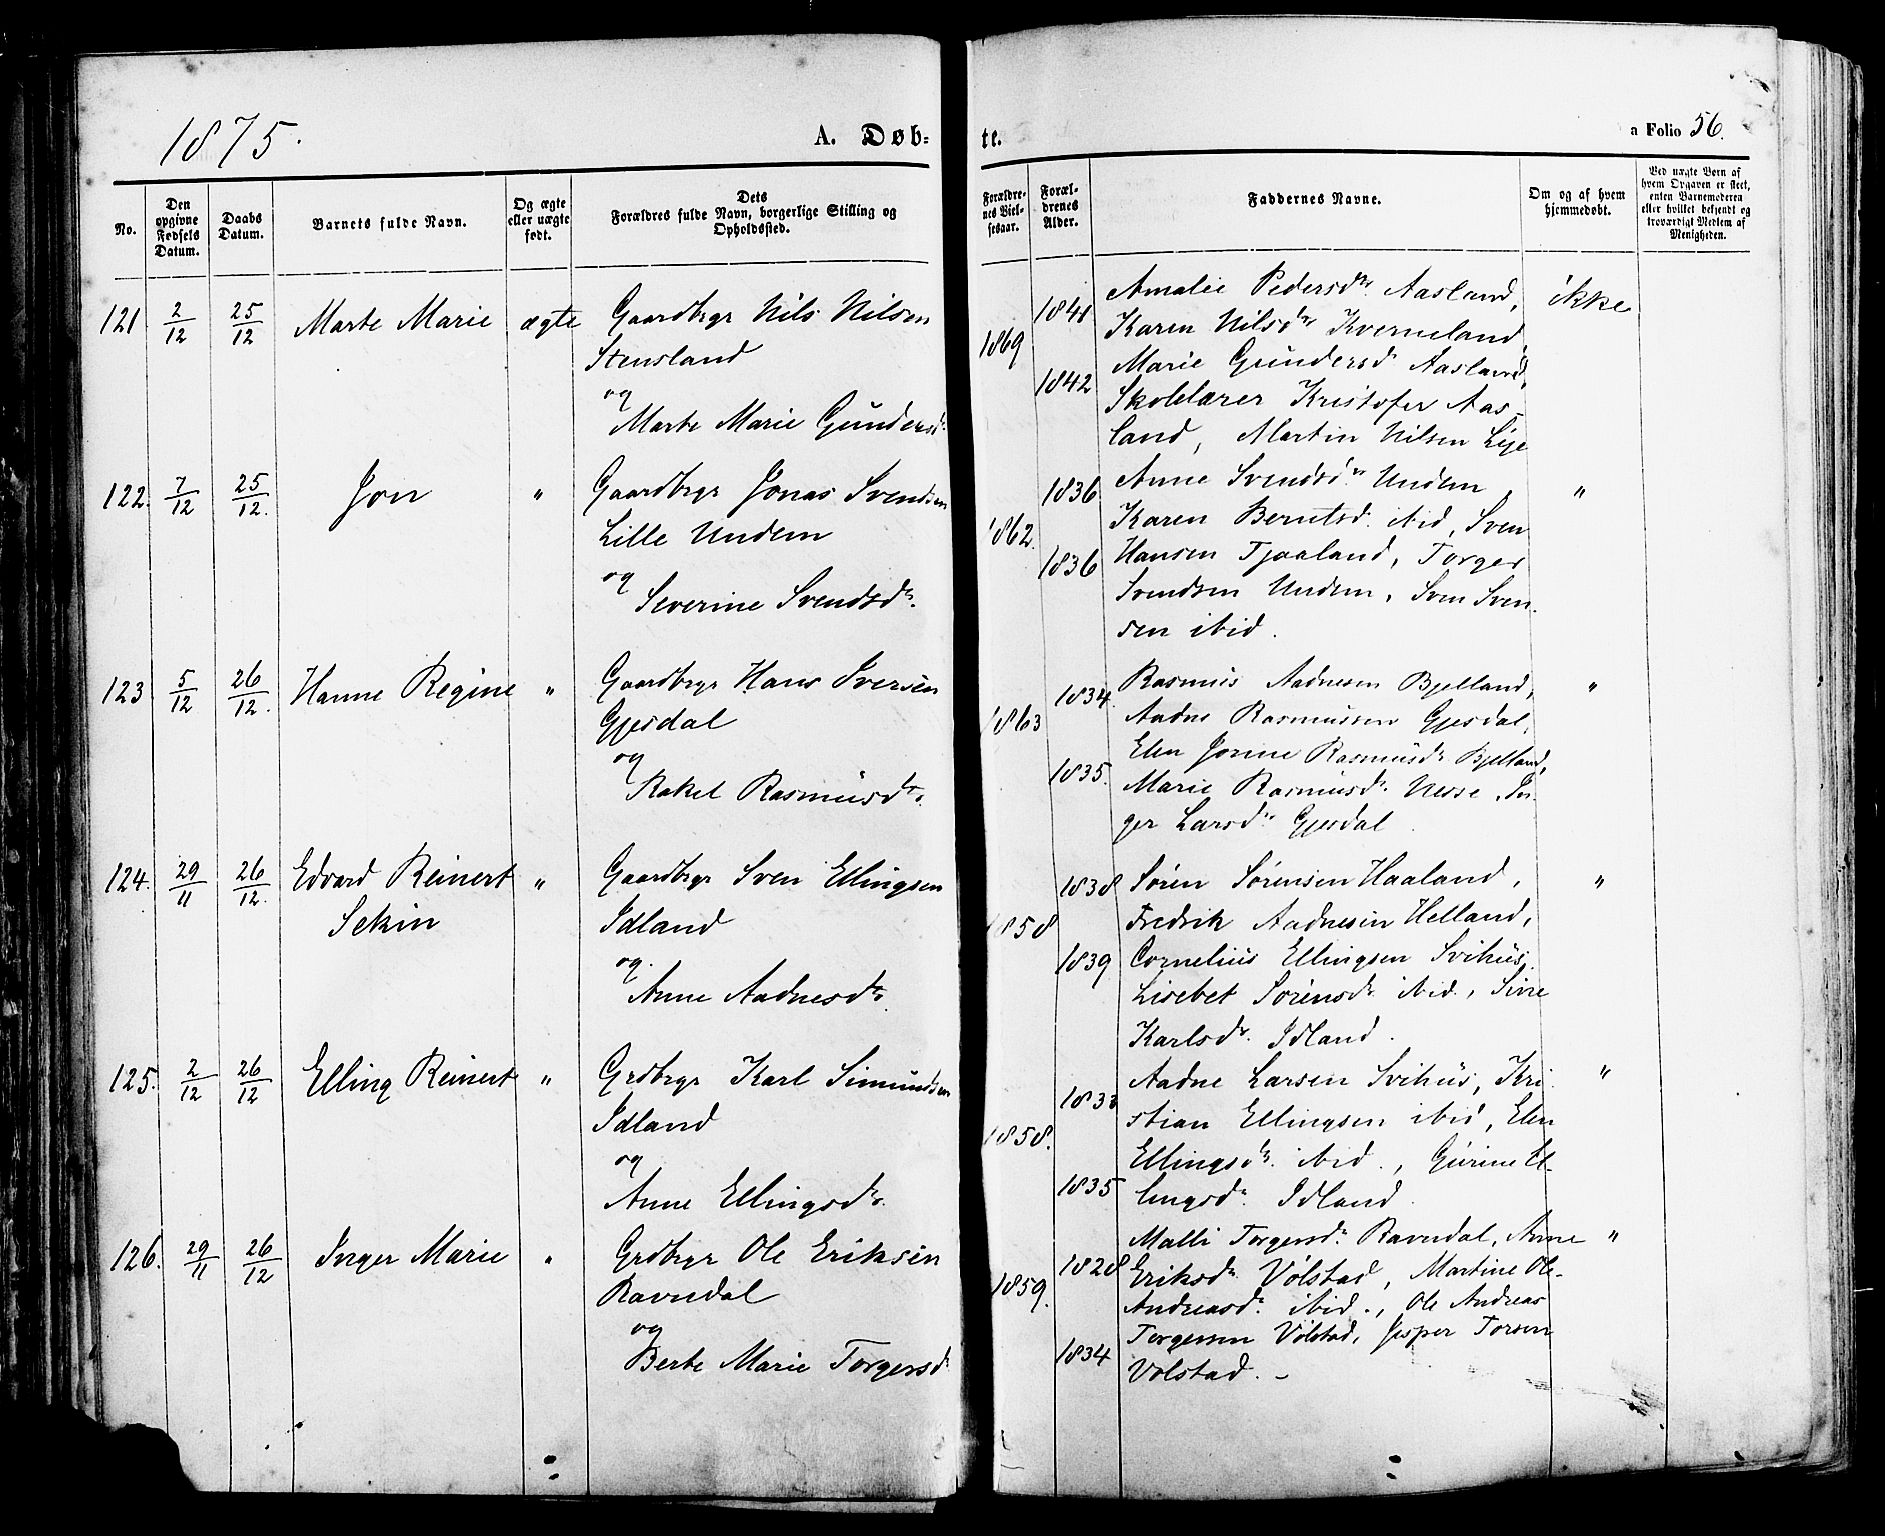 1875.
A. Døb-
te.
a Folio 56.
No.
Den
opgivne
Fødsels
Datum.
Daabs
Datum.
Barnets fulde Navn.
Og ægte
eller uægte
født.
Dets
Forældres fulde Navn, borgerlige Stilling og
Opholdssted.
Forældre-
nes Viel-
sesaar.
Foræl-
drenes
Alder.
Faddernes Navne.
Om og af hvem
hjemmedøbt.
Ved uægte Børn af
hvem Opgaven er skeet,
enten Barnemoderen
eller hvilket bekjendt og
troværdigt Medlem af
Menigheden.
121 2/12 25/12 Marte Marie ægte Gaardbrgr Nils Nilsen
Stensland
og
Marte Marie Gundersdr
1869
1841
1842
Amalie Pedersdtr Aasland,
Karen Nilsdtr Kverneland,
Marie Gundersdr Aasland,
Skolelærer Kristofer Aas-
land, Martin Nilsen Lye
ikke
122. 7/12 25/12. Jon " Gaardbrgr Jonas Svendsen
Lille Undem
og
Severine Svendsdr.
1862.
1836
1836
Anne Svendsdtr Undem,
Karen Berntsd. ibid, Sven
Hansen Tjaaland, Torger
Svendsen Undem, Sven Sven-
sen ibid.
"
123 5/12 26/12. Hanne Regine " Gaardbrgr Hans Iversen
Gjesdal
og
Rakel Rasmusdtr.
1863
1834.
1835.
Rasmus Aadnesen Bjelland,
Aadne Rasmussen Gjesdal,
Elen Jorine Rasmusdr Bjelland,
Marie Rasmusdr Nesse, In-
ger Larsdtr Gjesdal.
"
124. 29/11 26/12. Edvard Reinert " Gaardbrgr Sven Ellingsen
Sekin
Idland
og.
Anne Aadnesdtr.
1858
1838
1839
Søren Sørensen Haaland,
Fredrik Aadnesen Helland,
Cornelius Ellingsen Svihus,
Lisebet Sørensdr ibid., Sivre
Karlsdr. Idland.
"
125. 2/12 26/12 Elling Reinert " Grdbrgr Karl Simundsen
Idland
og
Anne Ellingsdtr.
1858.
1833
1835
Aadne Larsen Svihus, Kri-
stian Ellingsen ibid, Elen
Ellingsdtr. ibid., Gurine El-
lingsdr Idland.
"
126. 29/11 26/12 Inger Marie " Grdbrgr Ole Eriksen
Ravndal
og
Berte Marie Torgersdr
1859.
1828
1834
Malli Torgersdr Ravndal, Anne
Eriksdr Vølstad, Martine Ole-
Andreasdr. ibid., Ole Andreas
Torgersen Vølstad, Jesper Torsen
Vølstad. -
"